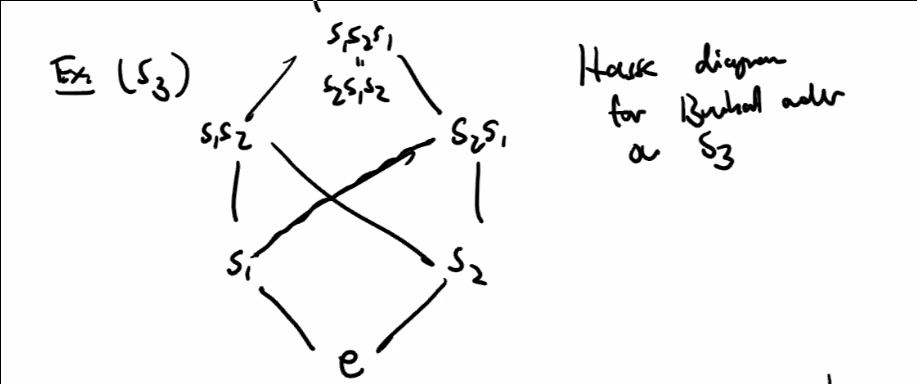 Ex. (S₃)
s₁s₂s₁
=
s₂s₁s₂
s₁s₂
s₂s₁
s₁
s₂
e
Hasse diagram
for Bruhat order
on S₃